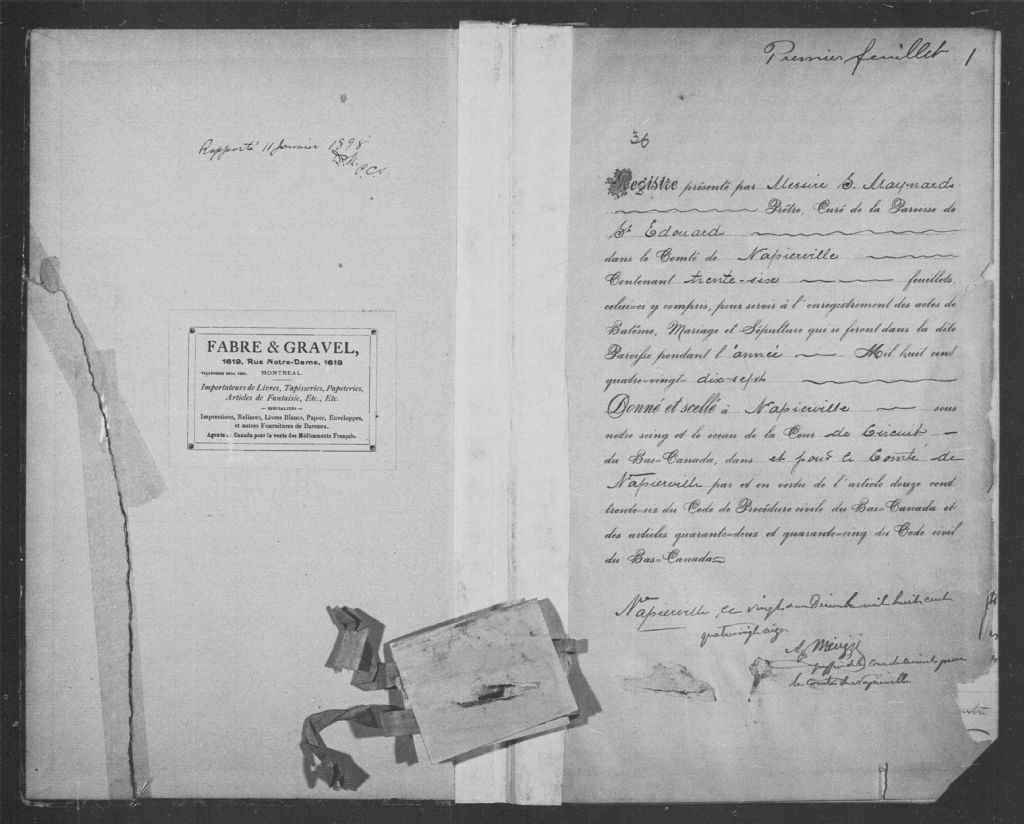 Rapporté 11 Janvier 1898
FABRE & GRAVEL,
1619, Rue Notre-Dame, 1619
MONTREAL.
Importateurs de Livres, Tapisseries, Papeteries,
Articles de Fantaisie, Etc., Etc.
— SPÉCIALITÉS —
Impressions, Reliures, Livres Blancs, Papier, Enveloppes,
et autres Fournitures de Bureaux.
Agents au Canada pour la vente des Médicaments Français.
Premier feuillet 1
36
Registre présenté par Messire S. Maynard
Prêtre, Curé de la Paroisse de
St Edouard
dans le Comté de Napierville
Contenant trente-six feuillets,
celui-ci y compris, pour servir à l'enregistrement des actes de
Batême, Mariage et Sépulture qui se feront dans la dite
Paroisse pendant l'année Mil huit cent
quatre-vingt- dix-sept
Donné et scellé à Napierville sous
notre seing et le sceau de la Cour de Circuit
du Bas=Canada, dans et pour le Comté de
Napierville par et en vertu de l'article douze cent
trente=six du Code de Procédure civile du Bas=Canada et
des articles quarante=deux et quarante=cinq du Code civil
du Bas=Canada
Napierville, ce vingt un Décembre mil huit cent
quatrevingt seize
le Comté de Napierville